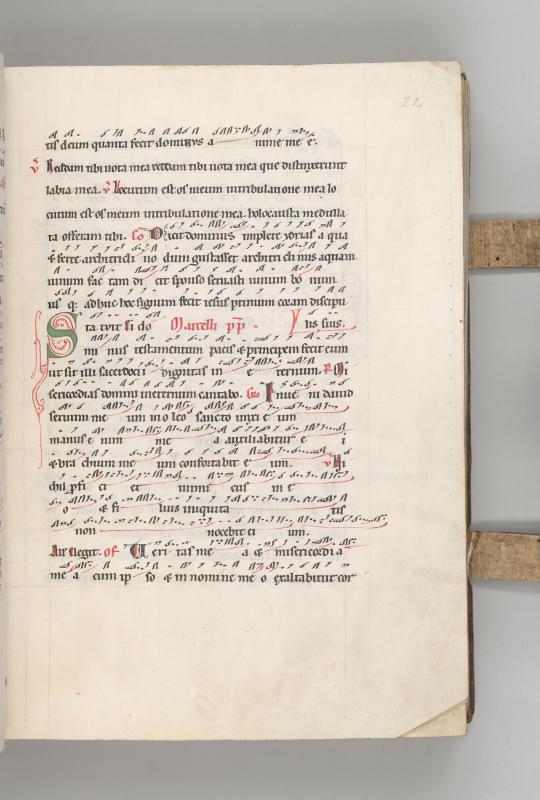 22
tis deum quanta fecit dominus a nime me e.
℣ Reddam tibi vota mea reddam tibi vota mea que distinxerunt
labia mea. ℣ Locutum est os meum in tribulatione mea lo
cutum est os meum in tribulatione mea. holocausta medulla
ta offeram tibi. Co Dicit dominus implete ydrias a qua
& ferte architricli no dum gustasset architriclinus aquam
uinum fac tam di cit sponso seruasti uinum bo num
us q: adhuc hoc signum fecit iesus primum coram discipu
Sta tvit si do Marcelli pp. lis suis.
mi nus testamentum pacis & principem fecit eum
ut sit illi sacerdocii dignitas in e ternum. Ps Mi
sericordias domini ineternum cantabo. Inue ni dauid
seruum me um in oleo sancto unxi e um
manus e nim me a auxiliabitur e i
& bra chium me um confortabit e um. ℣ Ni
chil profi ci et inimi cus in e
o & fi lius iniquita tis
non nocebit ei um.
elegit. of Ueri tas me a & misericordi a
me a cum ip so & in nomine me o exaltabitur cor